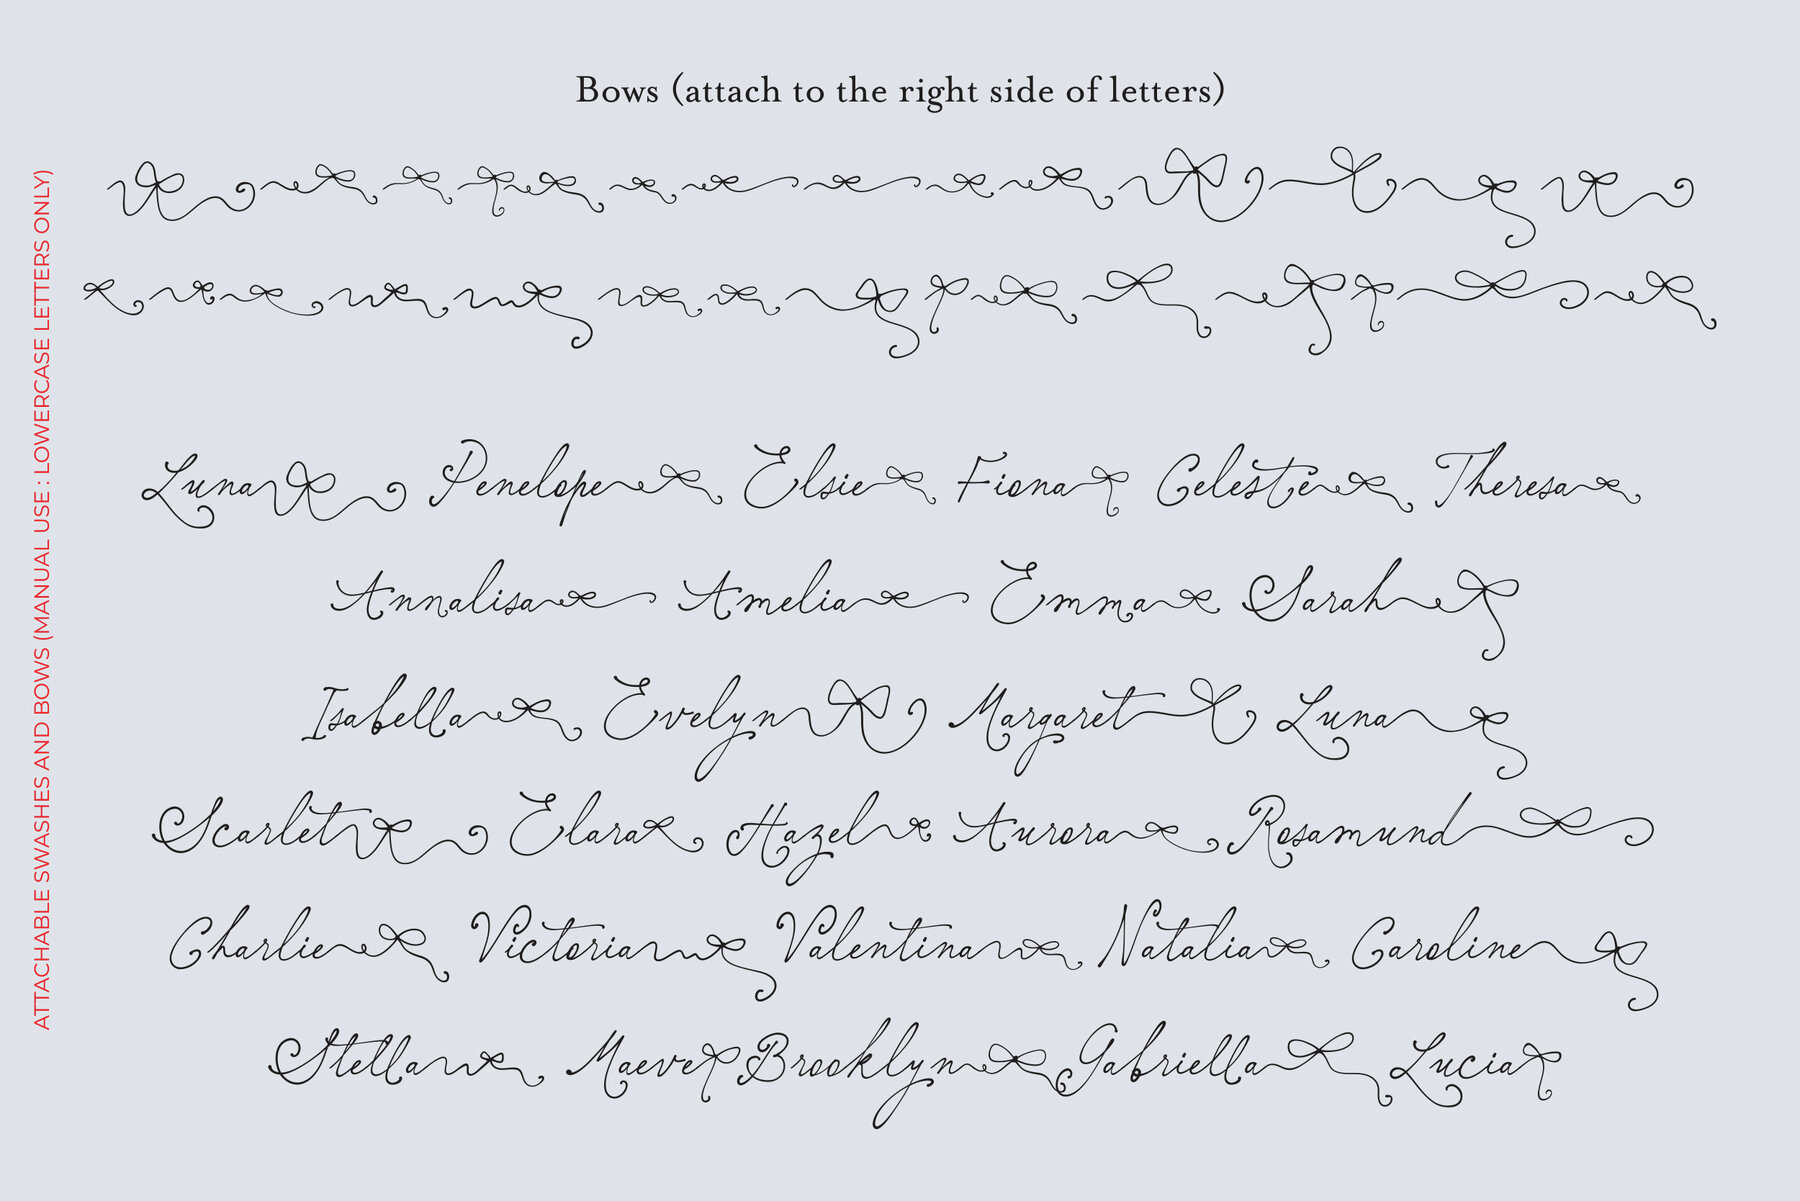 Bows (attach to the right side of letters)
ATTACHABLE SWASHES AND BOWS (MANUAL USE : LOWERCASE LETTERS ONLY)
Luna Penelope Elsie Fiona Celeste Theresa
Annalisa Amelia Emma Sarah
Isabella Evelyn Margaret Luna
Scarlet Elara Hazel Aurora Rosamund
Charlie Victoria Valentina Natalia Caroline
Stella Maeve Brooklyn Gabriella Lucia